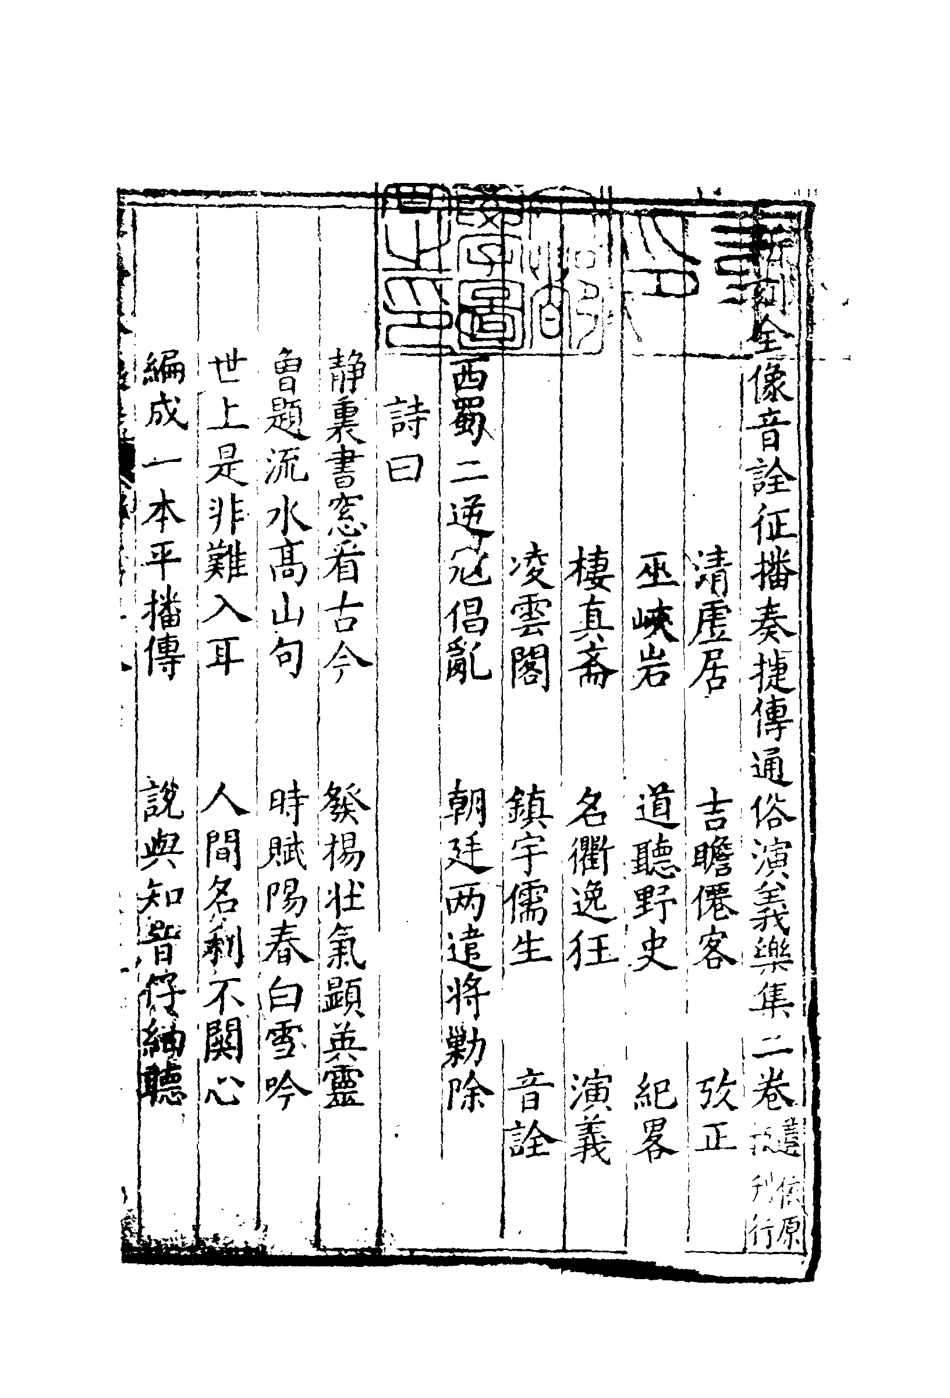 新刻全像音詮征播奏捷傳通俗演義樂集二卷
依原
刊行
清虛居 吉瞻僊客 攷正
巫峽岩 道聽野史 紀畧
棲真齋 名衢逸狂 演義
凌雲閣 鎮宇儒生 音詮
西蜀二逆㓂倡亂 朝廷两遣將勦除
詩曰
静裏書窓看古今 發揚壮氣顕英靈
魯題流水髙山句 時賦陽春白雪吟
世上是非難入耳 人間名利不関心
編成一本平播傳 說與知音仔細聽